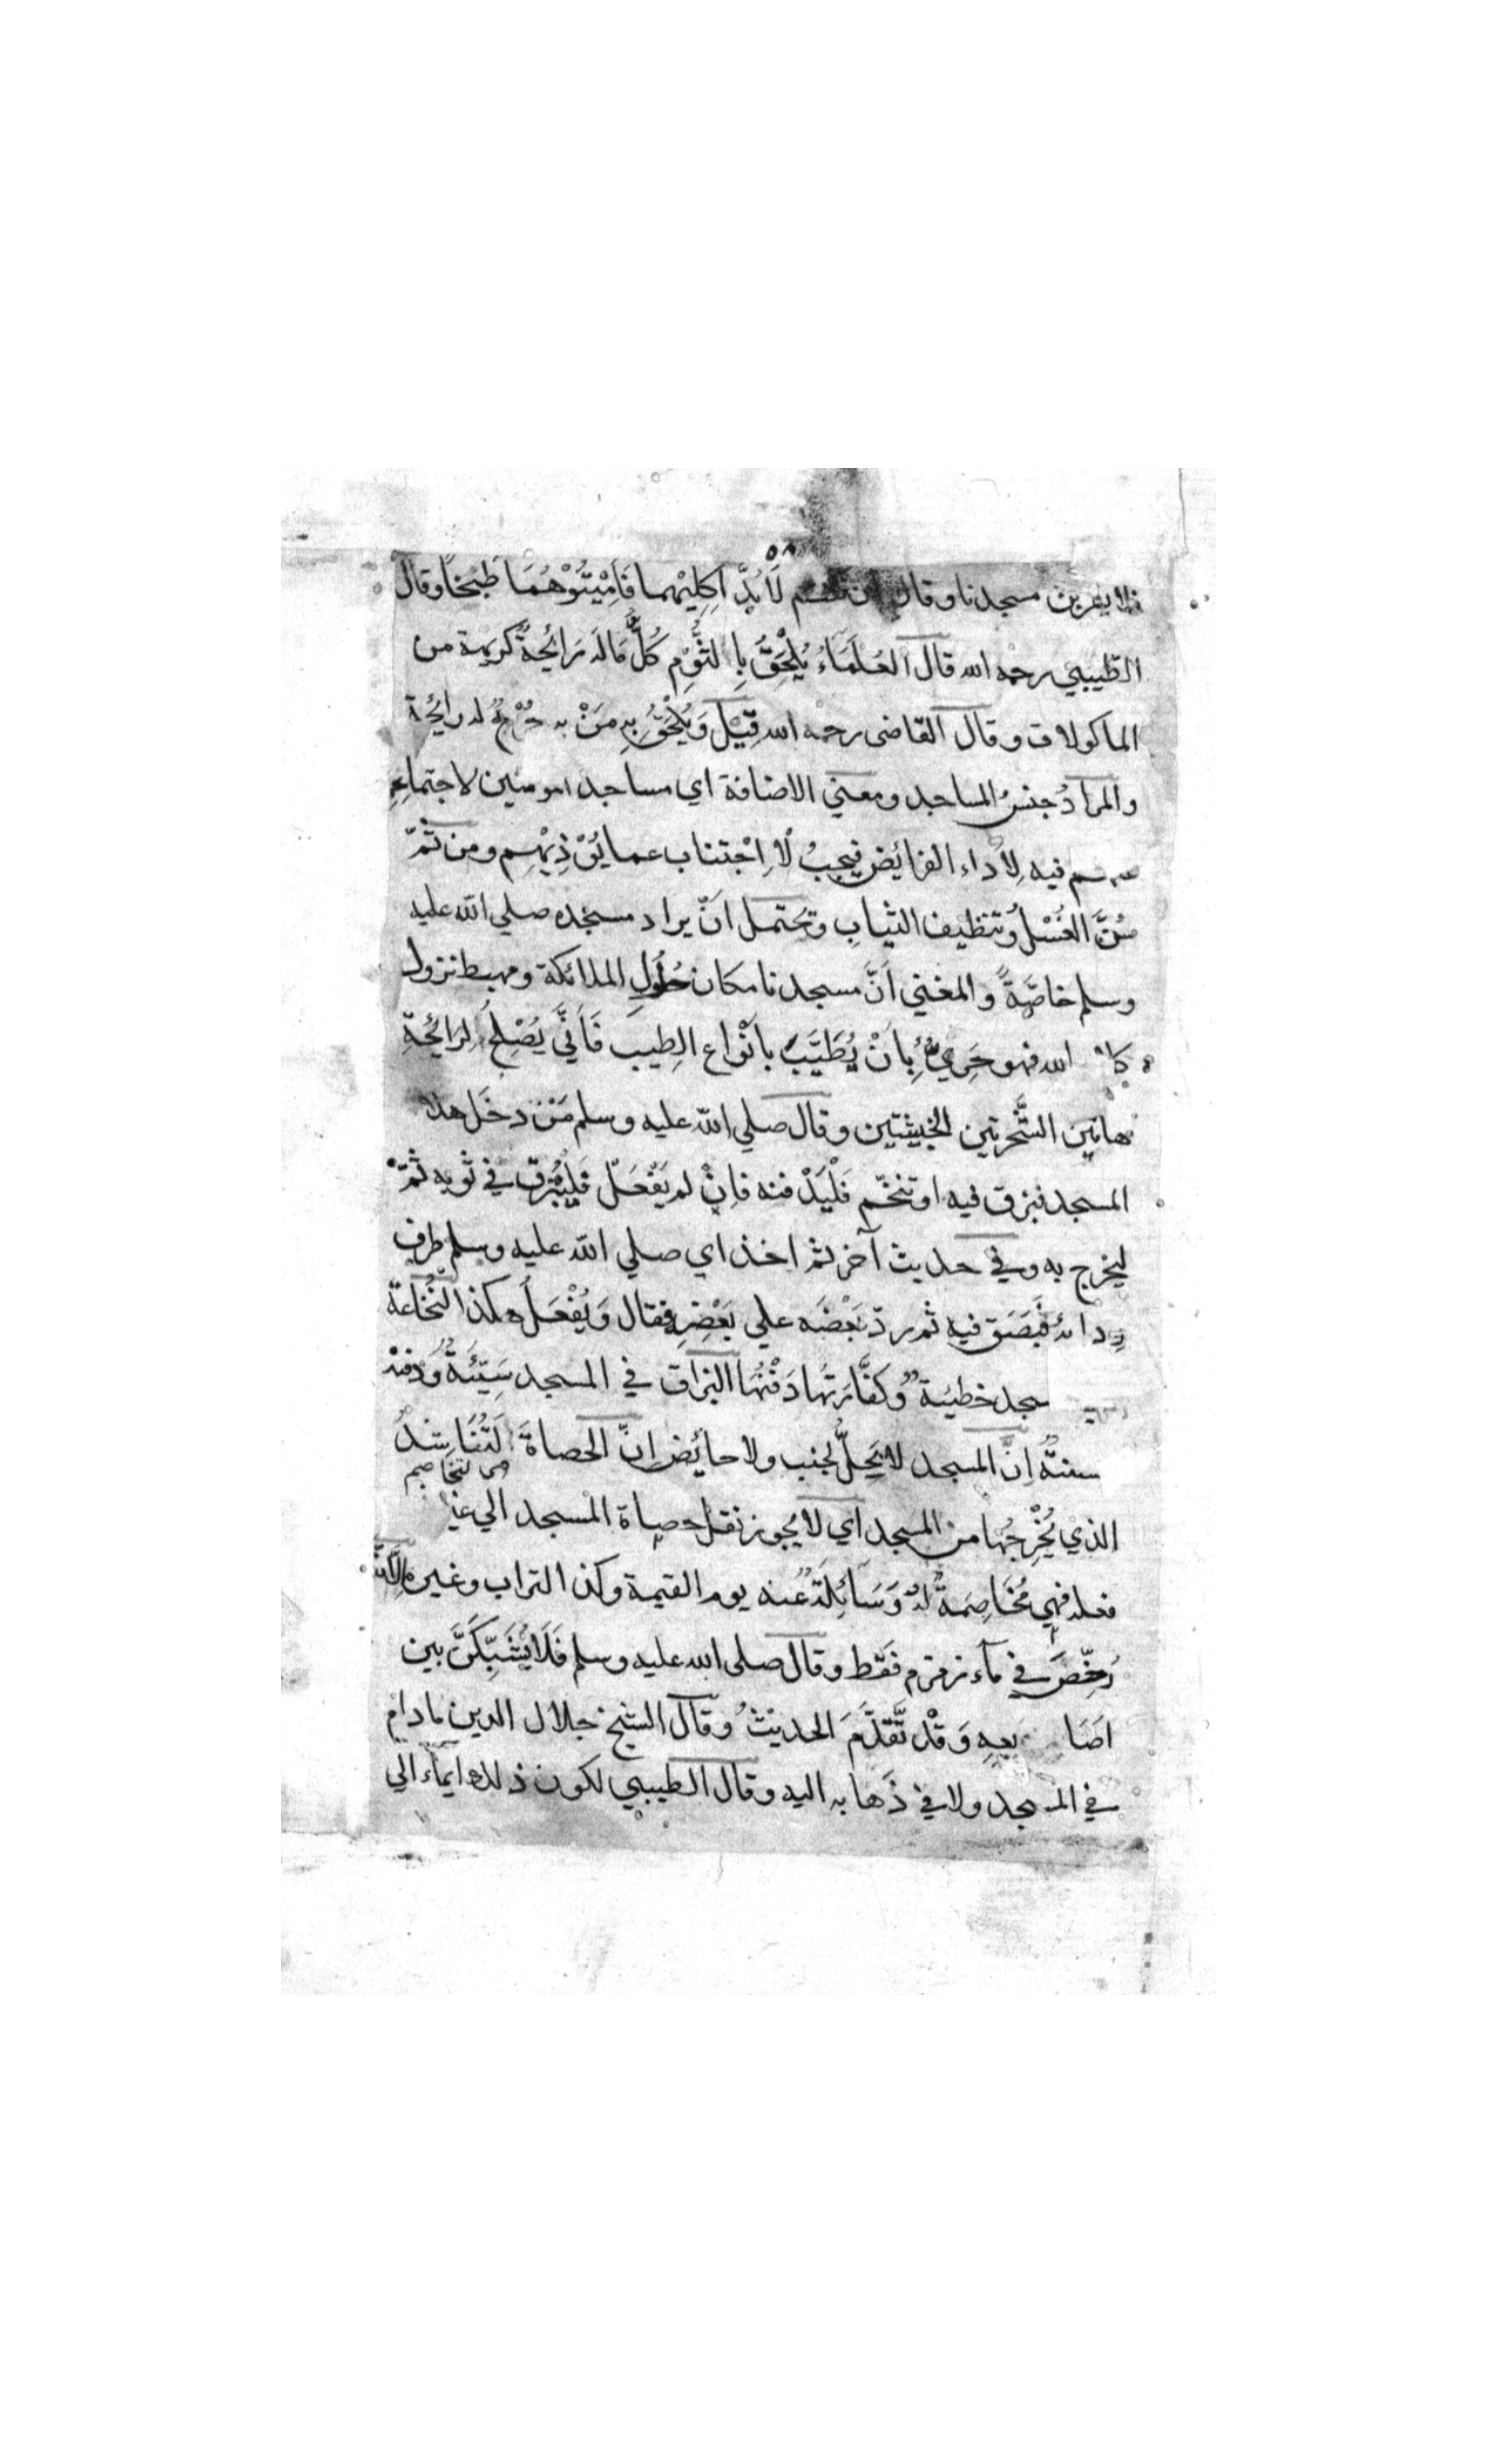 ٥٨
فلا يقربن مسجدنا وقال ان كنتم لَا بُدَّ اٰكِلِيْهِما فَاَمِيْتُوْهُمَا طَبْخًا وقال
الطيبي رحمه الله قال العُلَمَاءُ يُلْحَقُ بِالثُّوْمِ كُلُّ مَا لَه رَائِحَةٌ كَرِيْهة من
الماكولات وقال القاضى رحمه الله قِيْلَ وَيُلْحَقُ بِه مَنْ به جُرْحٌ له رائحة
والمرادُ جنسُ المساجد ومعني الاضافة اي مساجد المومنين لاجتماعِ
هم فيه لِأداء الفرائض فيجبُ لْاِجْتناب عما يُؤْذِيْهِم ومن ثَمَّ
سُنَّ الغُسْلُ وتنظيف الثيابِ وتحتمل اَنْ يراد مسجده صلي الله عليه
وسلم خاصّةً والمعني اَنَّ مسجدنا مكان حُلُولِ الملائكة ومهبط نزول
كلام الله فهو حَرِيٌّ بِاَنْ يُطَيَّبَ بانْواع الطِيبِ فَاَنّٰي يَصْلِحُ لِرَائِحَةِ
هاتين الشَّجرتين الخبيثتين وقال صلي الله عليه وسلم مَنْ دخَل هذا
المسجد فبزق فيه او تنخّم فَلْيَدْفنه فاِنْ لم يَفْعَلْ فَلْيَبْزُق في ثوبه ثُمَّ
ليخرج به وفي حديث آخر ثم اخذ اي صلي الله عليه وسلم طرف
رِدائه فَبَصَق فيه ثم ردّ بَعْضَه علي بَعْضٍ فقال وَيُفْعَلُ هكذا النُّخَاعةُ
سجد خطيئة وكفَّارتُها دَفْنُهَا البزاق في المسجد سَيّئَةٌ وَدفنه
سنةٌ اِنَّ المسجد لا يَحِلُّ لجنب ولا حائض اِنّ الحصاةَ لَتُنَاشِدُ
اى لتخاصم
الذي يُخْرِجُها من المسجد اي لا يجوز نقل حصاة المسجد الي غير
فعله فهي مُخَاصِمَةٌ لَهُ وَسَائِلَةٌ عنه يوم القيمة وكذا التراب وغيره لكنْ
رُخِّصَ في مآء زمزم فَقط وقال صلى الله عليه وسلم فَلَا يُشَبِّكَنَّ بين
اَصَابعِهِ وَقْد تَّقَدَّمَ الحديْثُ وقال الشيخ جلال الدين ما دام
في المسجد ولا في ذَهابه اليه وقال الطيبي لكون ذلك ايماء الي